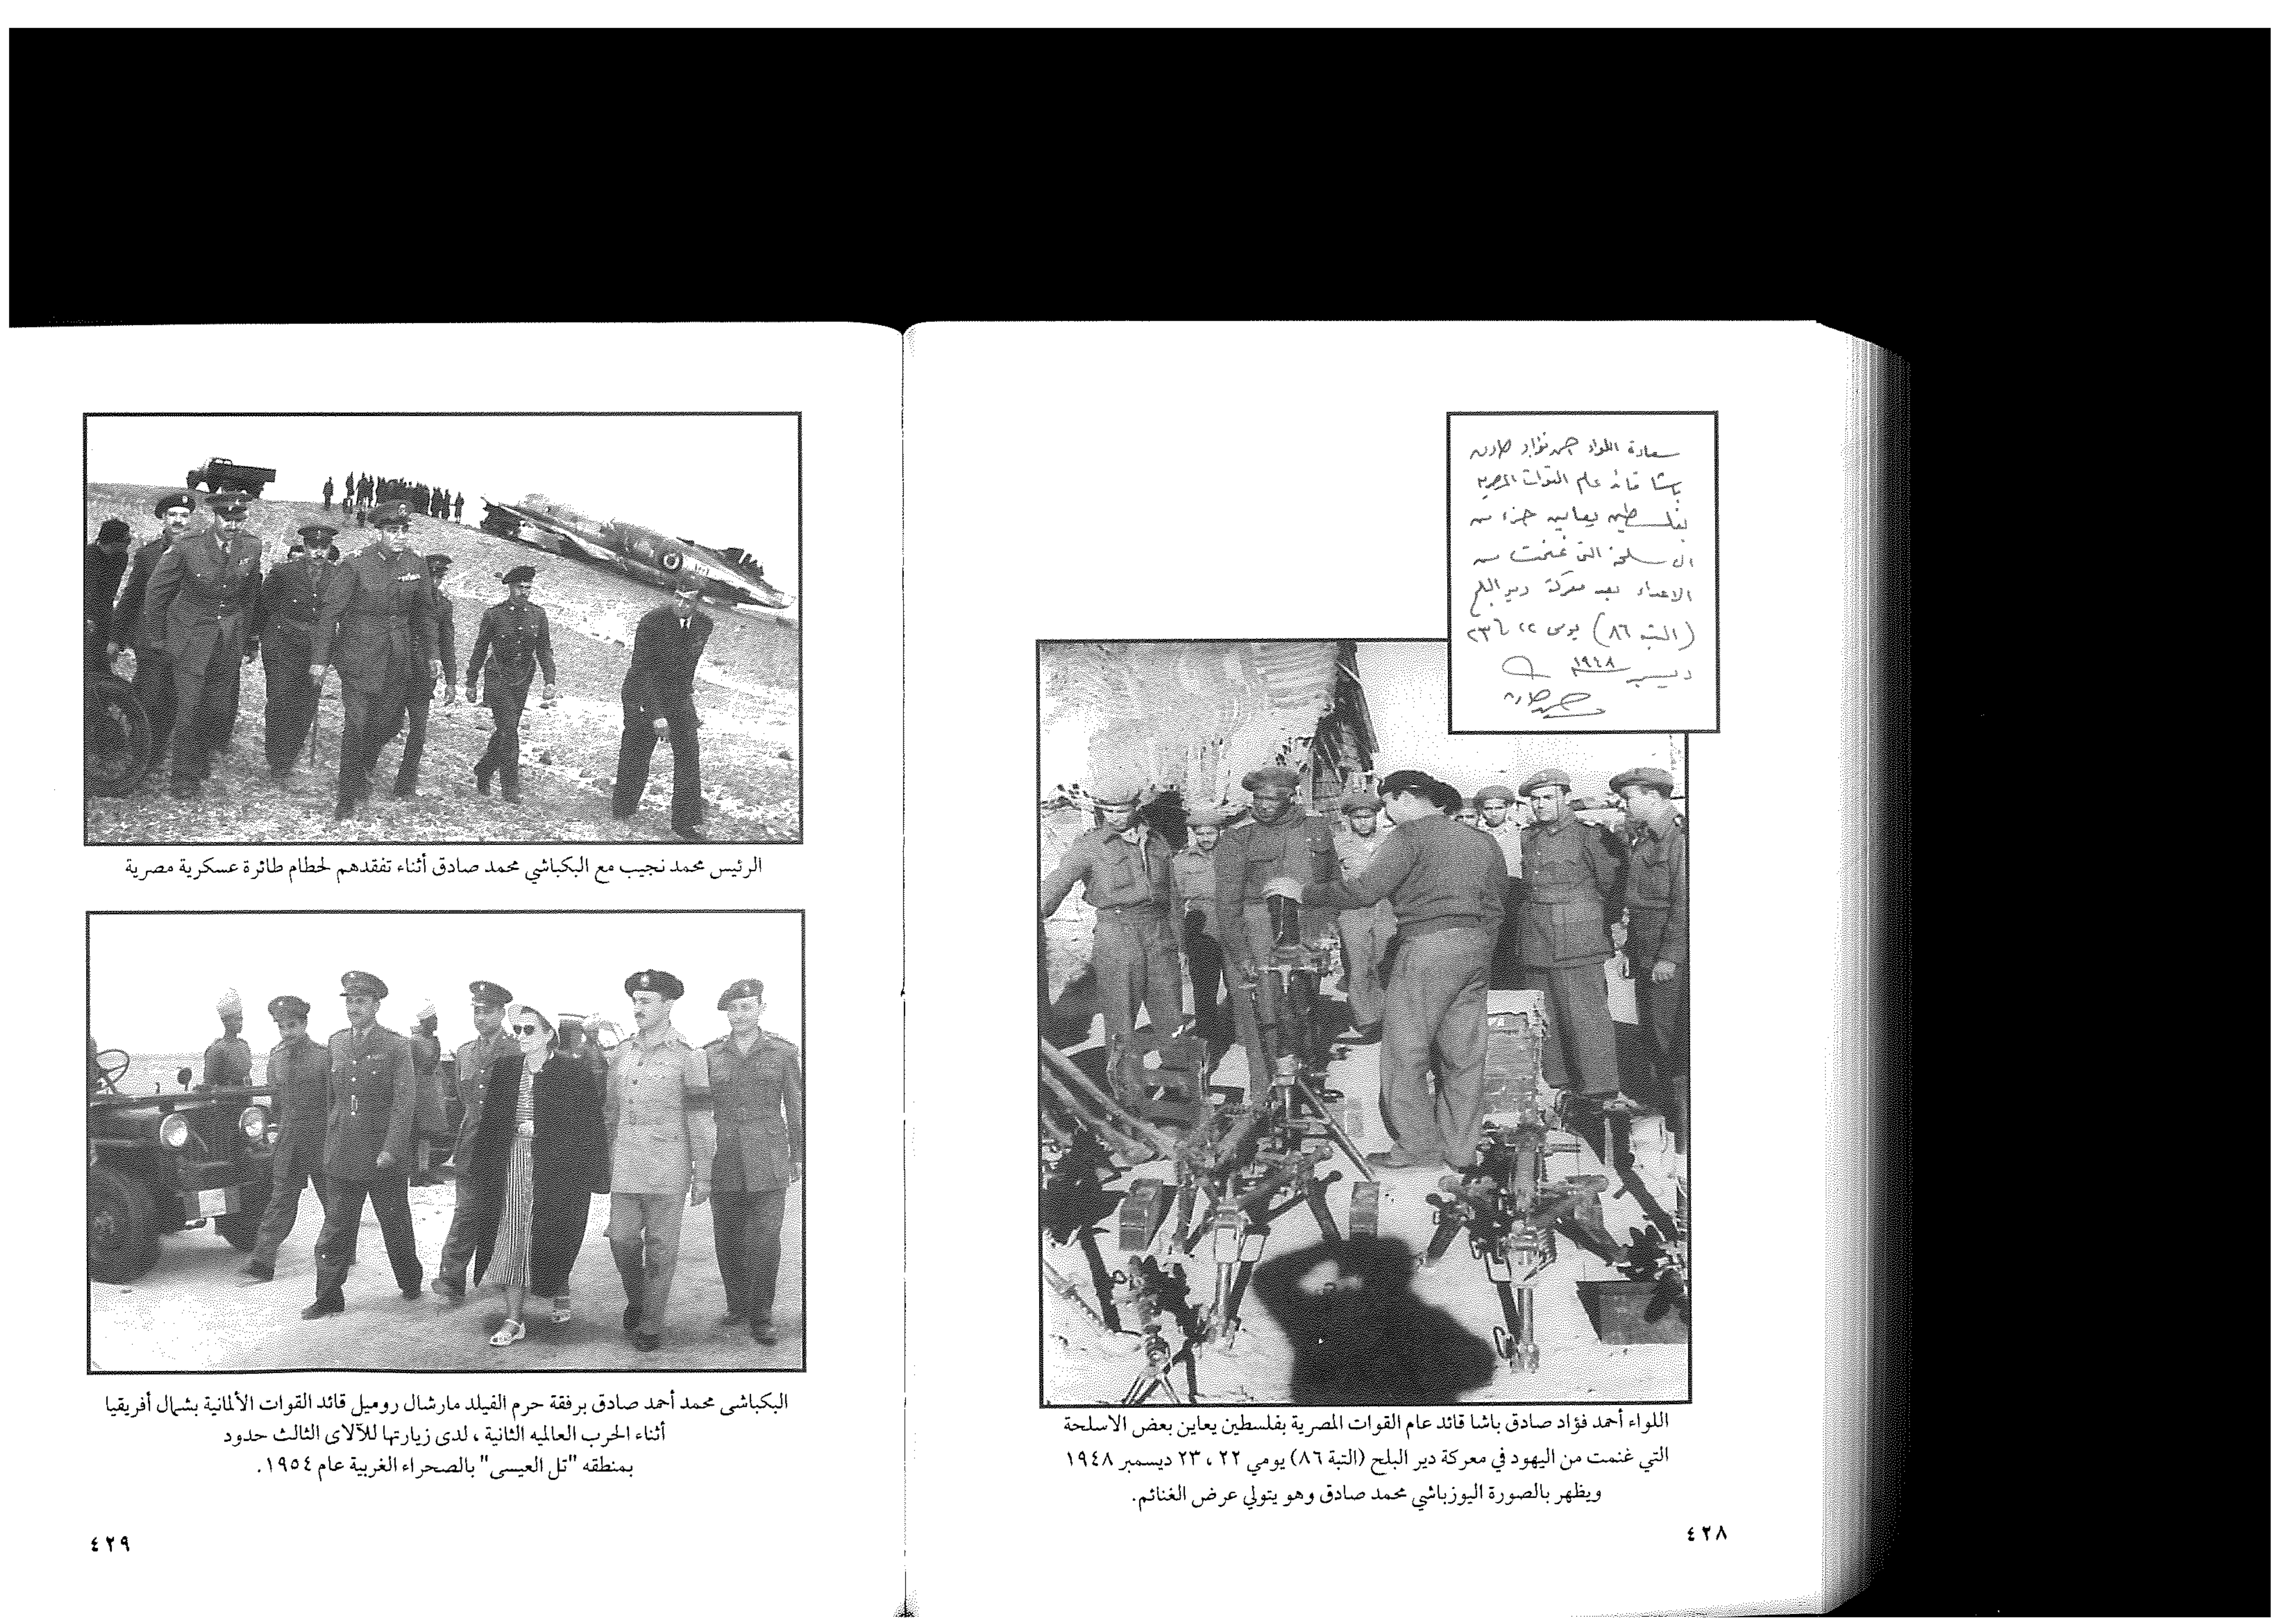 سعادة اللواء احمد فؤاد صادق
باشا قائد عام القوات المصرية
بفلسطين يعاين جزء من
الاسلحة التى غنمت من
الاعداء بعد معركة دير البلح
(التبه ٨٦) يومى ٢٢ ٢٣
ديسمبر ١٩٤٨
اللواء أحمد فؤاد صادق باشا قائد عام القوات المصرية بفلسطين يعاين بعض الاسلحة
التي غنمت من اليهود في معركة دير البلح (التبة ٨٦) يومي ٢٢ ، ٢٣ ديسمبر ١٩٤٨
ويظهر بالصورة اليوزباشي محمد صادق وهو يتولي عرض الغنائم.
٤٢٨
الرئيس محمد نجيب مع البكباشي محمد صادق أثناء تفقدهم لحطام طائرة عسكرية مصرية
البكباشى محمد أحمد صادق برفقة حرم الفيلد مارشال روميل قائد القوات الألمانية بشمال أفريقيا
أثناء الحرب العالميه الثانية ، لدى زيارتها للآلاى الثالث حدود
بمنطقه "تل العيسى" بالصحراء الغربية عام ١٩٥٤.
٤٢٩